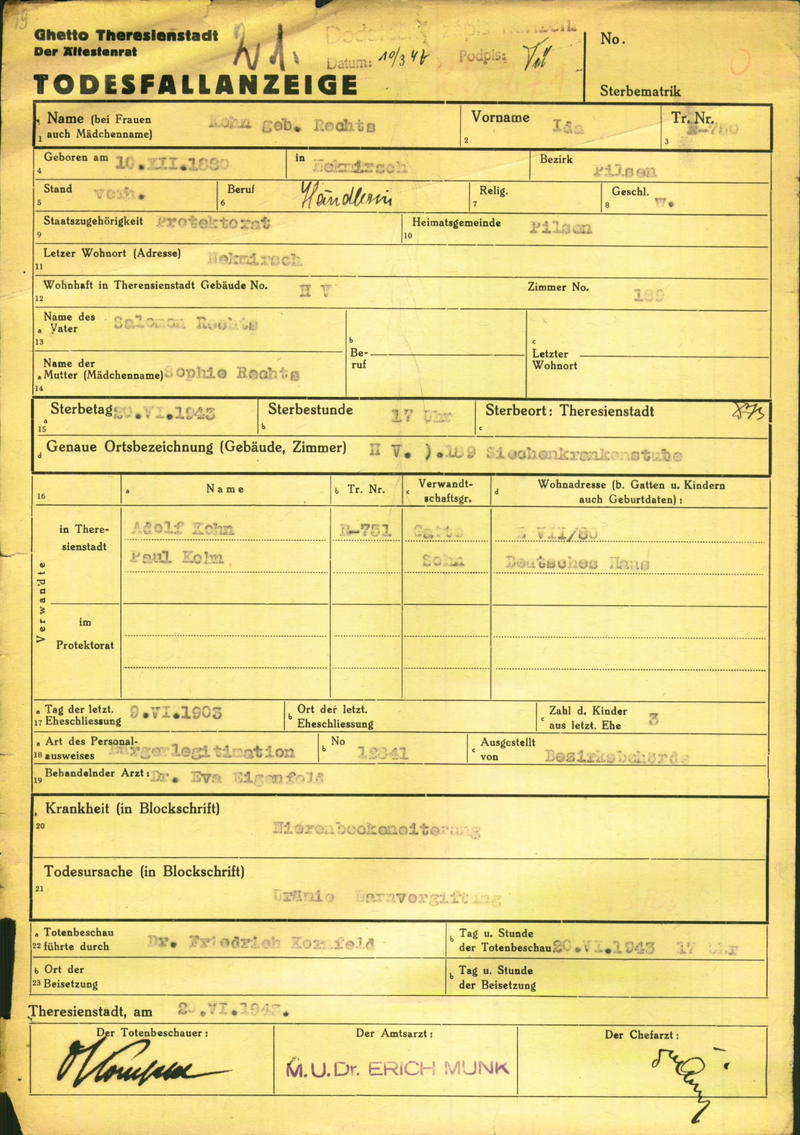 19
Ghetto Theresienstadt
Der Ältestenrat
TODESFALLANZEIGE
Datum: 10/3 Podpis:
No.
Sterbematrik
Name (bei Frauen auch Mädchenname) Kohn geb. Rechts
1
Vorname Ida
2
Tr. Nr.
3
Geboren am 10.XII.1880
4
in Nekmirsch
Bezirk Pilsen
Stand verh.
5
Beruf Händlerin
6
Relig.
7
Geschl. w.
8
Staatszugehörigkeit Protektorat
9
Heimatsgemeinde Pilsen
10
Letzer Wohnort (Adresse) Nekmirsch
11
Wohnhaft in Theresienstadt Gebäude No. H V
12
Zimmer No. 189
Name des Vater Salomon Rechts
a
13
Name der Mutter (Mädchenname) Sophie Rechts
a
14
b
Beruf
c
Letzter Wohnort
Sterbetag 20.VI.1943
a
15
Sterbestunde 17 Uhr
b
Sterbeort: Theresienstadt
c
d Genaue Ortsbezeichnung (Gebäude, Zimmer) H V. ).189 Siechenkrankenstube
16
a Name
b Tr. Nr.
c Verwandtschaftsgr.
d Wohnadresse (b. Gatten u. Kindern auch Geburtdaten):
Verwandte
in Theresienstadt
Adolf Kohn R-751 Gatte L VII/80
Paul Kohn Sohn Deutsches Haus
im Protektorat
a Tag der letzt. Eheschliessung 9.VI.1903
17
b Ort der letzt. Eheschliessung
c Zahl d. Kinder aus letzt. Ehe 3
a Art des Personalausweises Bürgerlegitimation
18
b No 12341
c Ausgestellt von Bezirksbehörde
Behandelnder Arzt: Dr. Eva Eigenfeld
19
Krankheit (in Blockschrift)
20
Nierenbeckeneiterung
Todesursache (in Blockschrift)
21
Urämie Harnvergiftung
a Totenbeschau führte durch Dr. Friedrich Kornfeld
22
b Tag u. Stunde der Totenbeschau 20.VI.1943 17 Uhr
b Ort der Beisetzung
23
b Tag u. Stunde der Beisetzung
Theresienstadt, am 20.VI.1943.
Der Totenbeschauer:
Der Amtsarzt:
M.U.Dr. ERICH MUNK
Der Chefarzt: